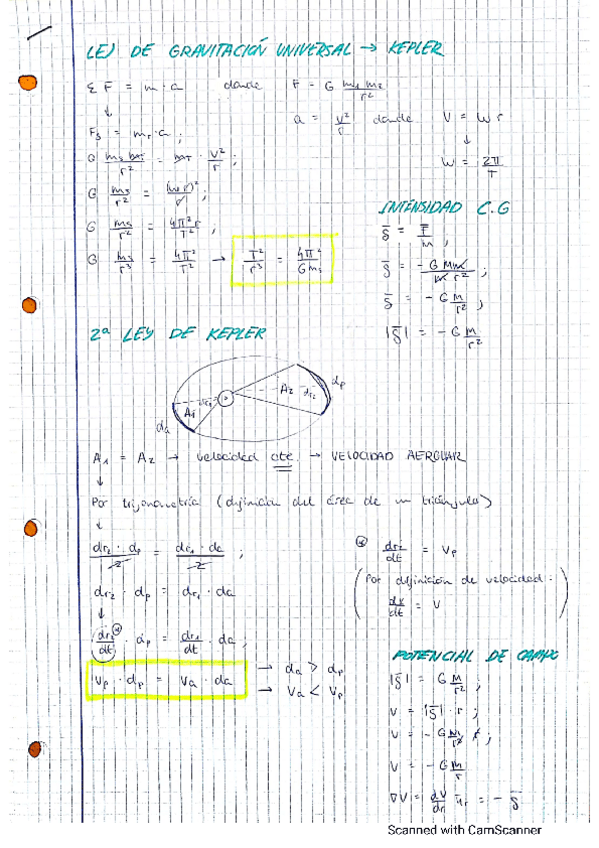 LEY DE GRAVITACIÓN UNIVERSAL → KEPLER
Σ F = m · a donde F = G m₁ m₂ / r²
↓ a = v² / r donde V = W r
Fg = m_T · a ; ↓
G m_s m_T / r² = m_T · v² / r ; W = 2π / T
G m_s / r² = (w r)² / r ;
G m_s / r² = 4π² r / T² ;
G m_s / r³ = 4π² / T² → T² / r³ = 4π² / G m_s
INTENSIDAD C.G
g̅ = F̅ / m ;
g̅ = - G M m / m r² ;
g̅ = - G M / r² ;
|g̅| = - G M / r²
2ª LEY DE KEPLER
A₁ dr₁ da A₂ dr₂ dp
A₁ = A₂ → velocidad cte. → VELOCIDAD AEROLAR
↓
Por trigonometría (definición del área de un triángulo)
↓
dr₂ · dp / 2 = dr₁ · da / 2 ;
dr₂ · dp = dr₁ · da
↓
dr₂ / dt · dp = dr₁ / dt · da ;
Vp · dp = Va · da → da > dp
→ Va < Vp
dr₂ / dt = Vp
(Por definición de velocidad:
dx / dt = V)
POTENCIAL DE CAMPO
|g̅| = G M / r² ;
V = |g̅| · r ;
V = - G M / r² r ;
V = - G M / r
∇V = dV / dr u̅r = - g̅
Scanned with CamScanner